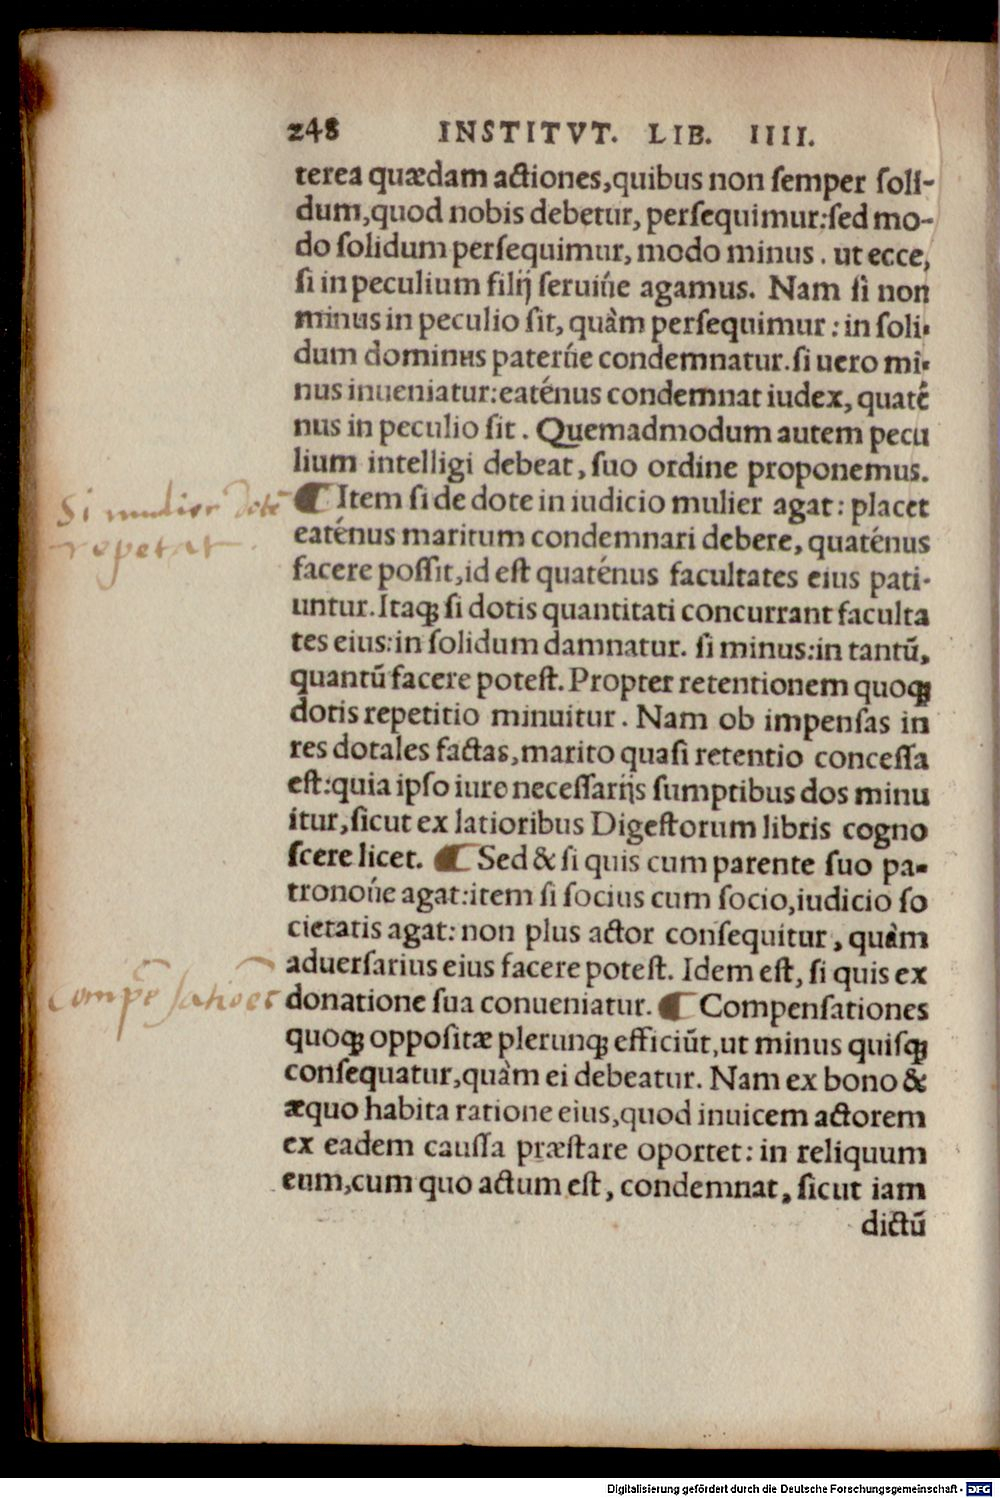 248 INSTITVT. LIB. IIII.
terea quædam actiones,quibus non ſemper ſoli-
dum,quod nobis debetur, perſequimur:ſed mo-
do ſolidum perſequimur, modo minus. ut ecce,
ſi in peculium filij ſeruiúe agamus. Nam ſi non
minus in peculio ſit, quàm perſequimur: in ſoli-
dum dominus paterúe condemnatur. ſi uero mi-
nus inueniatur: eaténus condemnat iudex, quaté
nus in peculio ſit. Quemadmodum autem pecu
lium intelligi debeat, ſuo ordine proponemus.
Si mulier dotē
repetat.
¶ Item ſi de dote in iudicio mulier agat: placet
eaténus maritum condemnari debere, quaténus
facere poſſit, id eſt quaténus facultates eius pati-
untur. Itaqꝫ ſi dotis quantitati concurrant faculta
tes eius: in ſolidum damnatur. ſi minus: in tantū,
quantū facere poteſt. Propter retentionem quoqꝫ
dotis repetitio minuitur. Nam ob impenſas in
res dotales factas, marito quaſi retentio conceſſa
eſt: quia ipſo iure neceſſarijs ſumptibus dos minu
itur, ſicut ex latioribus Digeſtorum libris cogno
ſcere licet. ¶ Sed & ſi quis cum parente ſuo pa-
tronoúe agat: item ſi ſocius cum ſocio, iudicio ſo
cietatis agat: non plus actor conſequitur, quàm
aduerſarius eius facere poteſt. Idem eſt, ſi quis ex
Compēsatiōes
donatione ſua conueniatur. ¶ Compenſationes
quoqꝫ oppoſitæ plerunqꝫ efficiūt, ut minus quiſqꝫ
conſequatur, quàm ei debeatur. Nam ex bono &
æquo habita ratione eius, quod inuicem actorem
ex eadem cauſſa præſtare oportet: in reliquum
eum, cum quo actum eſt, condemnat, ſicut iam
dictū
Digitalisierung gefördert durch die Deutsche Forschungsgemeinschaft - DFG